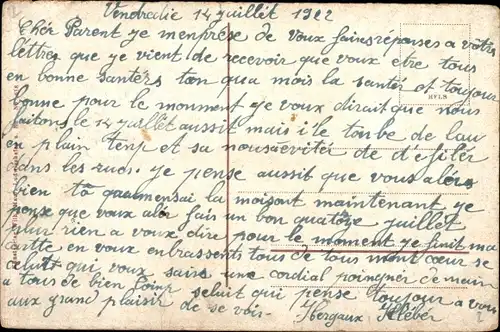 Vendredie 14 juillet 1922
Chér Parent je menprése de voux faires réponses a votre
lettres que je vient de recevoir que voux etre tous
en bonne santers ton qua mois la santér et toujour
bonne pour le monment je voux dirait que nous
faitons le 14 juillet aussit mais i'le tonbe de lau
en plain tenp et sa nous de d'efilér
dans les rues. je pense aussit que vous alér
bien la moisont maintenant je
pense que voux alér fais un bon quatoze juillet
plus rien a voux dire pour le moment je finit ma
cartte en voux enbrassents tous de tous mont cœur se
celut qui voux saire une cordial poingnier de main
a tous de bien loing seluit qui pense toujour a vous
aux grand plaisir de se voir. Hergaux Kléber